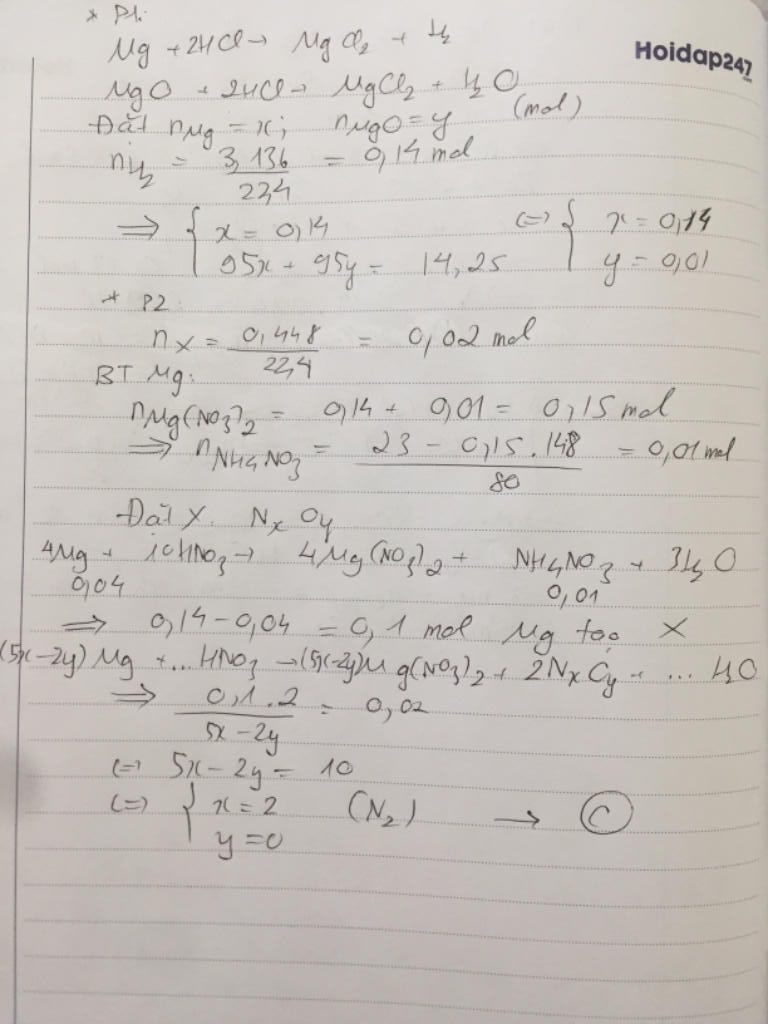 * P1:
Hoidap247
.com
Mg + 2HCl → MgCl₂ + H₂
MgO + 2HCl → MgCl₂ + H₂O
Đặt nMg = x; nMgO = y (mol)
nH₂ = 3,136 / 22,4 = 0,14 mol
⇒ { x = 0,14 (=) { x = 0,14
95x + 95y = 14,25 y = 0,01
* P2:
nX = 0,448 / 22,4 = 0,02 mol
BT Mg:
nMg(NO₃)₂ = 0,14 + 0,01 = 0,15 mol
⇒ nNH₄NO₃ = 23 - 0,15.148 / 80 = 0,01 mol
Đặt X: NxOy
4Mg + 10HNO₃ → 4Mg(NO₃)₂ + NH₄NO₃ + 3H₂O
0,04 0,01
⇒ 0,14 - 0,04 = 0,1 mol Mg tạo X
(5x-2y)Mg + ... HNO₃ → (5x-2y)Mg(NO₃)₂ + 2NxOy + ... H₂O
⇒ 0,1.2 / 5x-2y = 0,02
(=) 5x - 2y = 10
(=) { x = 2 (N₂) → C
y = 0